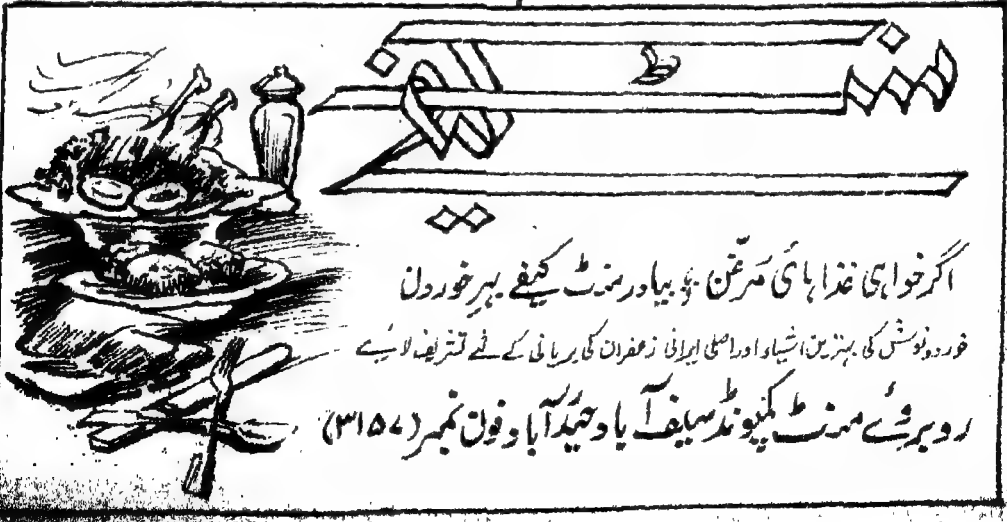 منٹ کیفے
اگر خواہی غذا ہائی مرغّن ؛ بیا در منٹ کیفے بہرِ خوردن
خورد و نوش کی بہترین اشیاء اور اصلی ایرانی زعفران کی بریانی کے لئے تشریف لائیے
روبروئے منٹ کمپونڈ سیف آباد حیدرآباد فون نمبر (۳۱۵۷)